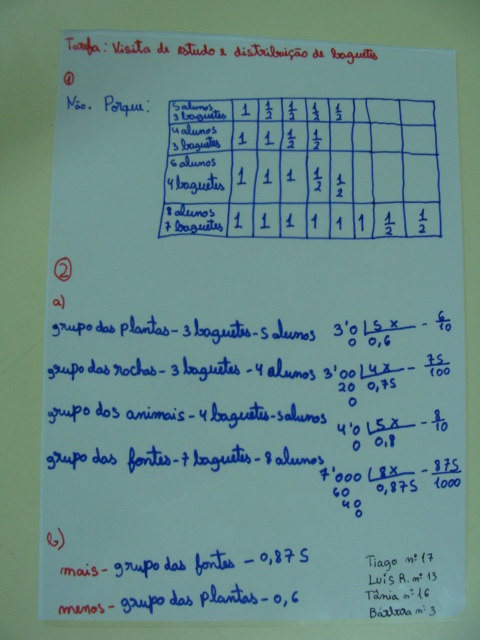 Tarefa: Visita de estudo e distribuição de baguetes
1
Não. Porque:
5 alunos 3 baguetes 1 1/2 1/2 1/2 1/2
4 alunos 3 baguetes 1 1 1/2 1/2
5 alunos 4 baguetes 1 1 1 1/2 1/2
8 alunos 7 baguetes 1 1 1 1 1 1 1/2 1/2
2
a)
grupo das plantas - 3 baguetes - 5 alunos 3'0 5 x - 6/10
0 0,6
grupo das rochas - 3 baguetes - 4 alunos 3'00 4 x - 75/100
20 0,75
0
grupo dos animais - 4 baguetes - 5 alunos 4'0 5 x - 8/10
0 0,8
grupo das fontes - 7 baguetes - 8 alunos 7'000 8 x - 875/1000
60 0,875
40
0
b)
mais - grupo das fontes - 0,875
menos - grupo das plantas - 0,6
Tiago nº 17
Luís R. nº 13
Tânia nº 16
Bárbara nº 3